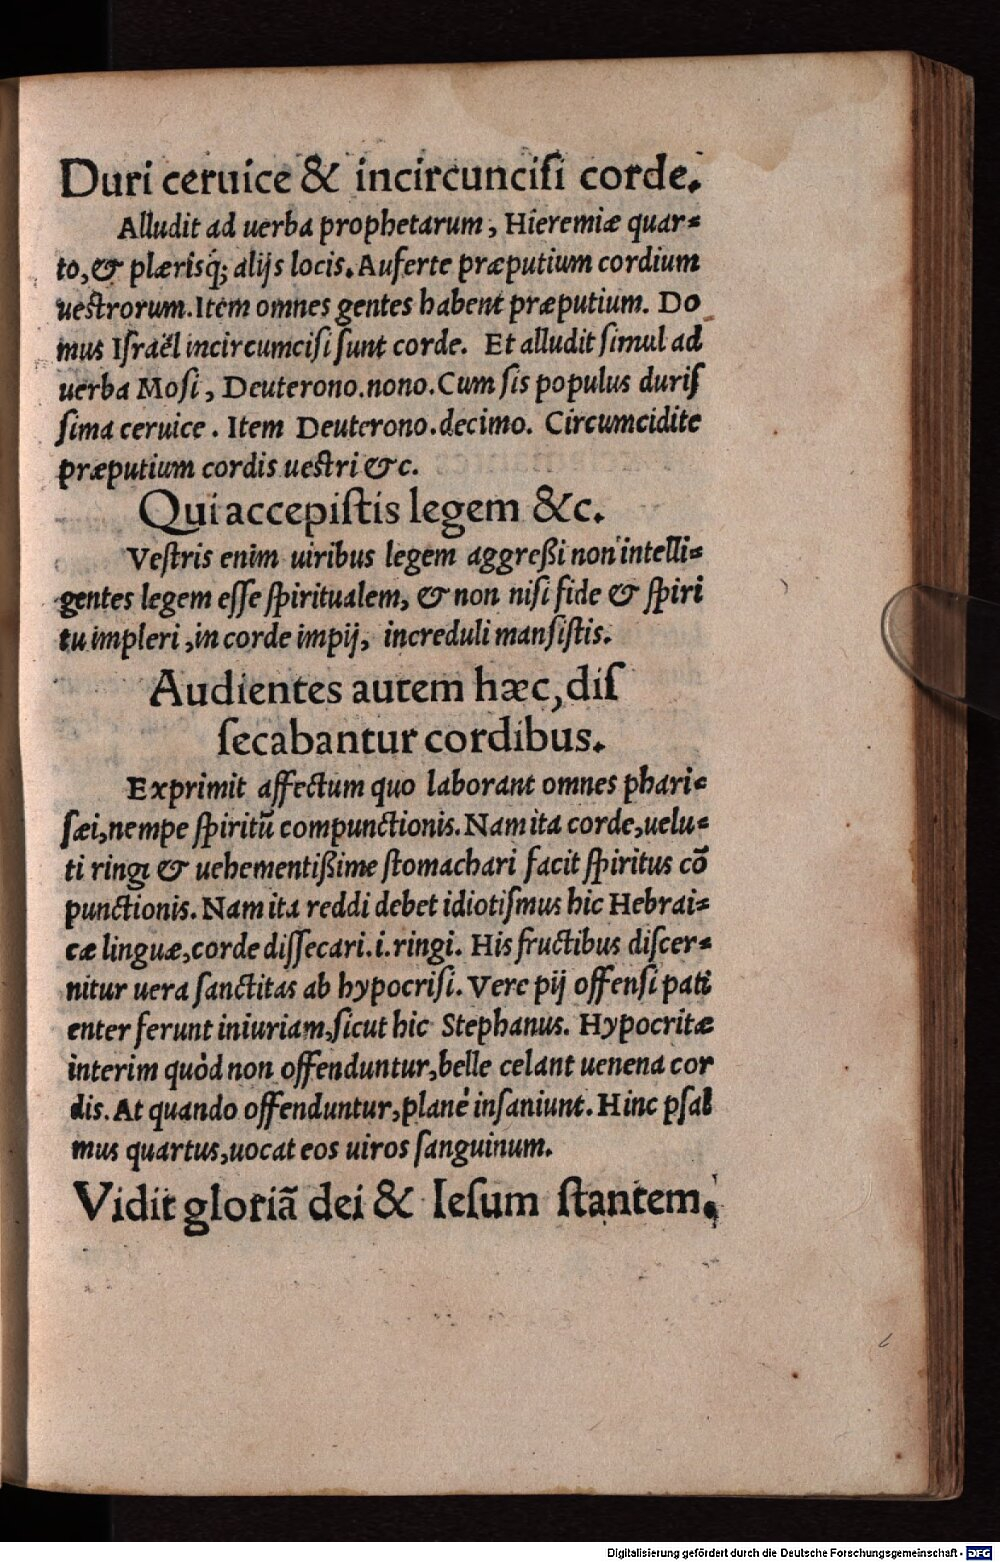 Duri ceruice & incircuncisi corde.
Alludit ad uerba prophetarum, Hieremiæ quar=
to, & plærisq; alijs locis. Auferte præputium cordium
uestrorum. Item omnes gentes habent præputium. Do
mus Israël incircumcisi sunt corde. Et alludit simul ad
uerba Mosi, Deuterono. nono. Cum sis populus duris
sima ceruice. Item Deuterono. decimo. Circumcidite
præputium cordis uestri &c.
Qui accepistis legem &c.
Vestris enim uiribus legem aggreßi non intelli=
gentes legem esse spiritualem, & non nisi fide & spiri
tu impleri, in corde impij, increduli mansistis.
Audientes autem hæc, dis
secabantur cordibus.
Exprimit affectum quo laborant omnes phari=
sæi, nempe spiritũ compunctionis. Nam ita corde, uelu=
ti ringi & uehementißime stomachari facit spiritus cõ
punctionis. Nam ita reddi debet idiotismus hic Hebrai=
cæ linguæ, corde dissecari. i. ringi. His fructibus discer=
nitur uera sanctitas ab hypocrisi. Vere pij offensi pati
enter ferunt iniuriam, sicut hic Stephanus. Hypocritæ
interim quòd non offenduntur, belle celant uenena cor
dis. At quando offenduntur, planè insaniunt. Hinc psal
mus quartus, uocat eos uiros sanguinum.
Vidit gloriã dei & Iesum stantem.
Digitalisierung gefördert durch die Deutsche Forschungsgemeinschaft - DFG